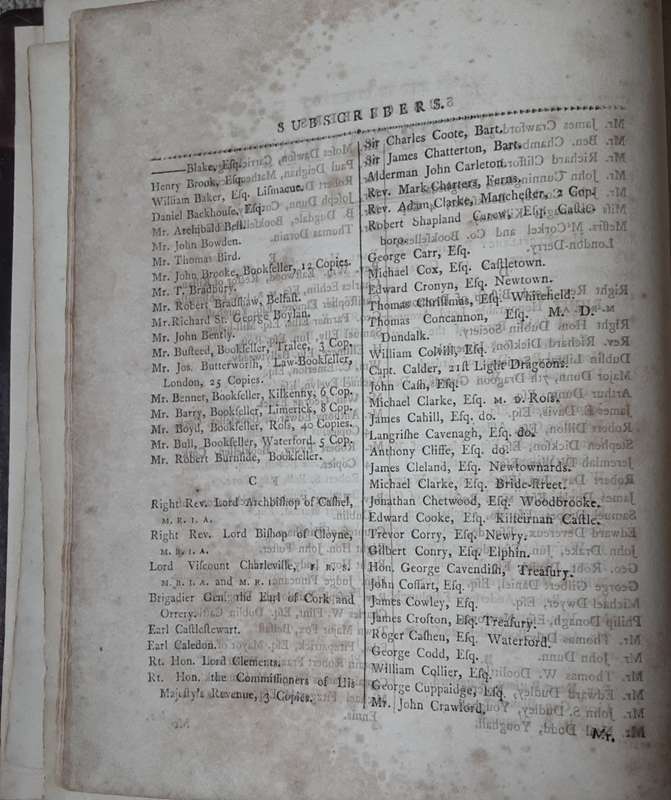 SUBSCRIBERS.
——Blake, Esq.
Henry Brook, Esq.
William Baker, Esq. Lisnacue.
Daniel Backhouse, Esq.
Mr. Archibald Best.
Mr. John Bowden.
Mr. Thomas Bird.
Mr. John Brooke, Bookſeller, 12 Copies.
Mr. T. Bradbury.
Mr. Robert Bradſhaw, Belfaſt.
Mr. Richard St. George Boylan.
Mr. John Bently.
Mr. Buſteed, Bookſeller, Tralee, 3 Cop.
Mr. Jos. Butterworth, Law-Bookſeller,
London, 25 Copies.
Mr. Bennet, Bookſeller, Kilkenny, 6 Cop.
Mr. Barry, Bookſeller, Limerick, 8 Cop.
Mr. Boyd, Bookſeller, Roſs, 40 Copies.
Mr. Bull, Bookſeller, Waterford. 5 Cop.
Mr. Robert Burnſide, Bookſeller.
C
Right Rev. Lord Archbiſhop of Caſhel,
M. R. I. A.
Right Rev. Lord Biſhop of Cloyne,
M. R. I. A.
Lord Viſcount Charleville, F. R. S.
M. R. I. A. and M. R. I.
Brigadier Gen. the Earl of Cork and
Orrery.
Earl Caſtleſtewart.
Earl Caledon.
Rt. Hon. Lord Clements.
Rt. Hon. the Commiſſioners of His
Majeſty's Revenue, 3 Copies.
Sir Charles Coote, Bart.
Sir James Chatterton, Bart.
Alderman John Carleton.
Rev. Mark Charters, Ferns.
Rev. Adam Clarke, Mancheſter, 2 Cop.
Robert Shapland Carew, Eſq. Caſtle-
boro.
George Carr, Eſq.
Michael Cox, Eſq. Caſtletown.
Edward Cronyn, Eſq. Newtown.
Thomas Chriſtmas, Eſq. Whitefield.
Thomas Concannon, Eſq. M. D.
Dundalk.
William Colvill, Eſq.
Capt. Calder, 21ſt Light Dragoons.
John Caſh, Eſq.
Michael Clarke, Eſq. M. D. Roſs.
James Cahill, Eſq. do.
Langriſhe Cavenagh, Eſq. do.
Anthony Cliffe, Eſq. do.
James Cleland, Eſq. Newtownards.
Michael Clarke, Eſq. Bride-ſtreet.
Jonathan Chetwood, Eſq. Woodbrooke.
Edward Cooke, Eſq. Kilteurnan Caſtle.
Trevor Corry, Eſq. Newry.
Gilbert Conry, Eſq. Elphin.
Hon. George Cavendiſh, Treaſury.
John Coſſart, Eſq.
James Cowley, Eſq.
James Crofton, Eſq. Treaſury.
Roger Caſhen, Eſq. Waterford.
George Codd, Eſq.
William Collier, Eſq.
George Cuppaidge, Eſq.
Mr. John Crawford.
Mr.